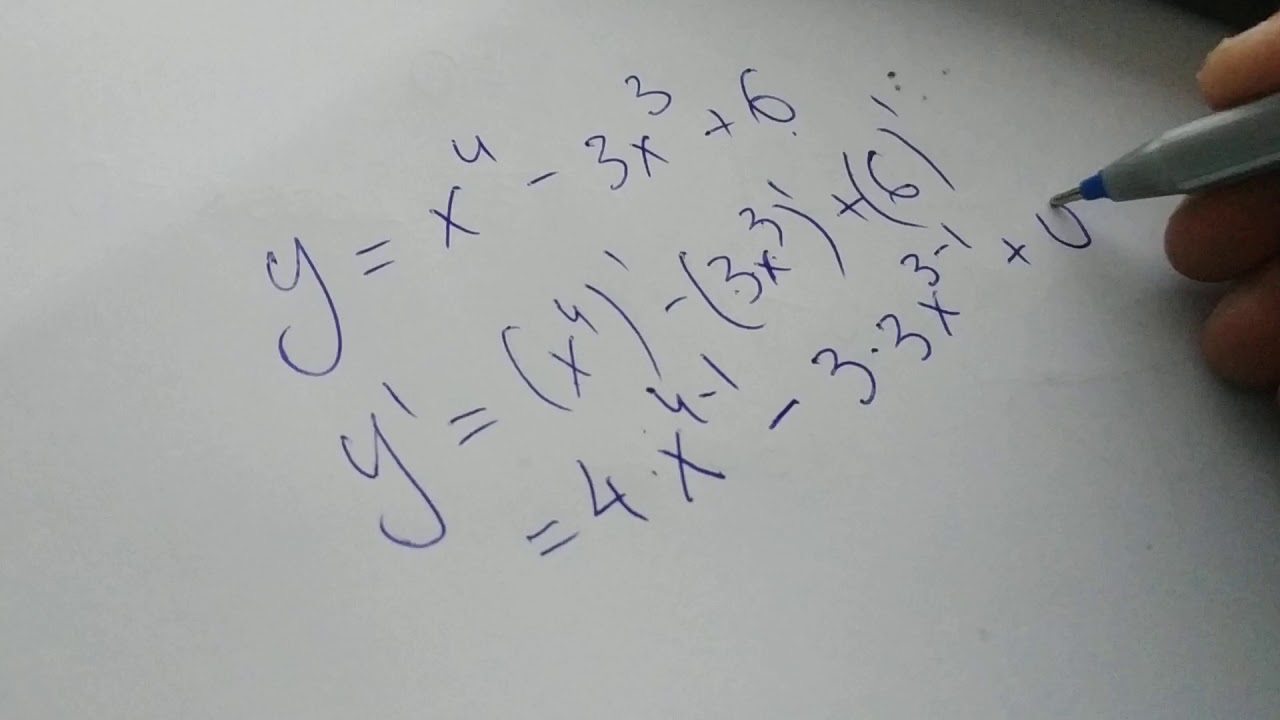 y = x⁴ - 3x³ + 6
y' = (x⁴)' - (3x³)' + (6)'
= 4·x⁴⁻¹ - 3·3x³⁻¹ +